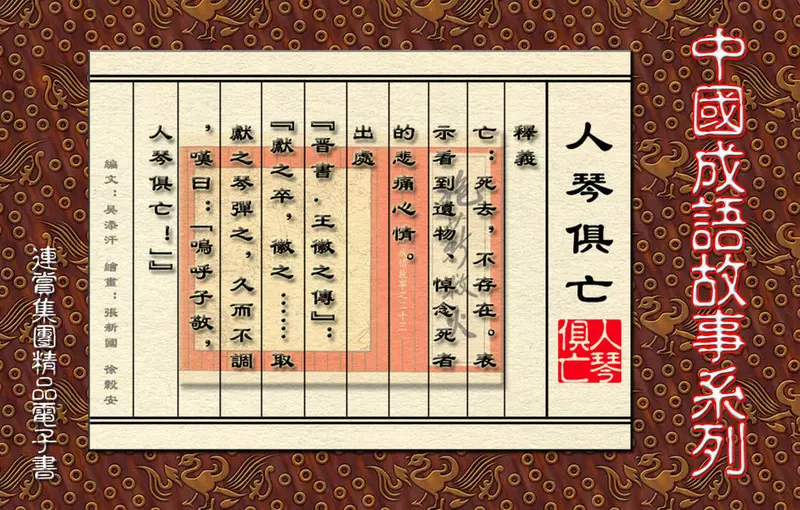 中國成語故事系列
人琴俱亡
人琴俱亡
釋義
亡：死去，不存在。表
示看到遺物、悼念死者
的悲痛心情。
出處
『晋書．王徽之傳』：
『獻之卒，徽之……取
獻之琴彈之，久而不調
，嘆曰：「嗚呼子敬，
人琴俱亡！」』
編文：吳添汗　繪畫：張新國　徐毅安
連嘗集團精品電子書